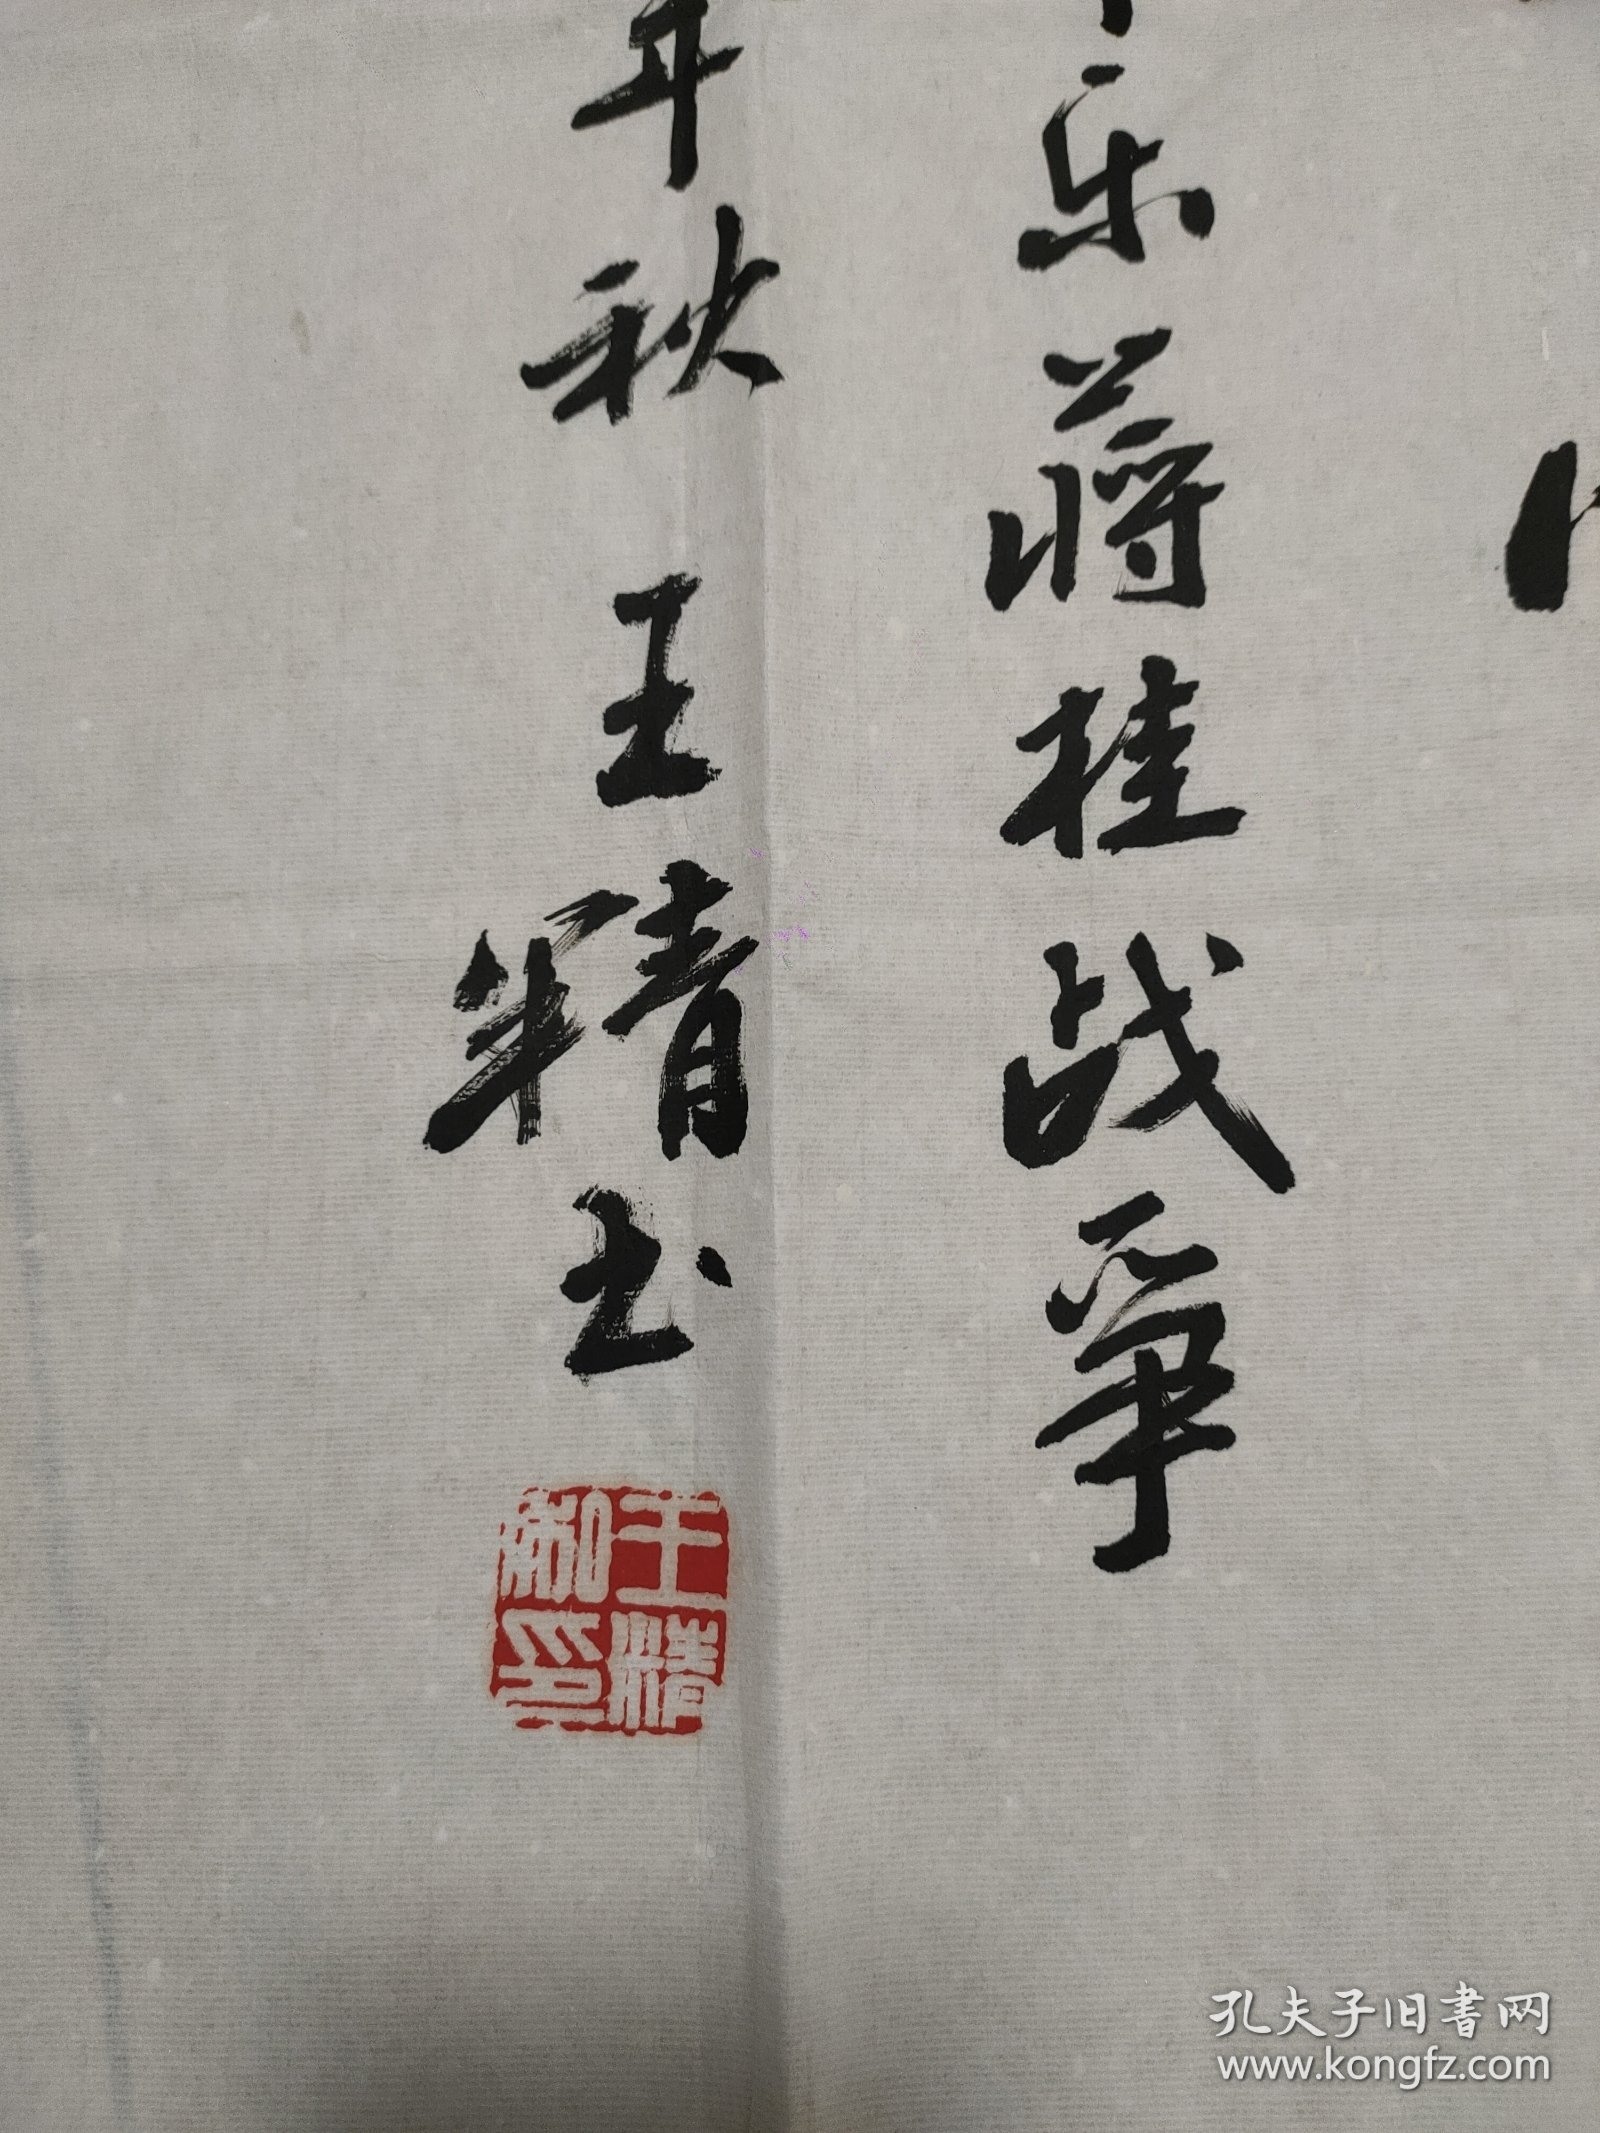 乐蒋桂战争
年秋 王精书
王精
私印
孔夫子旧书网
www.kongfz.com